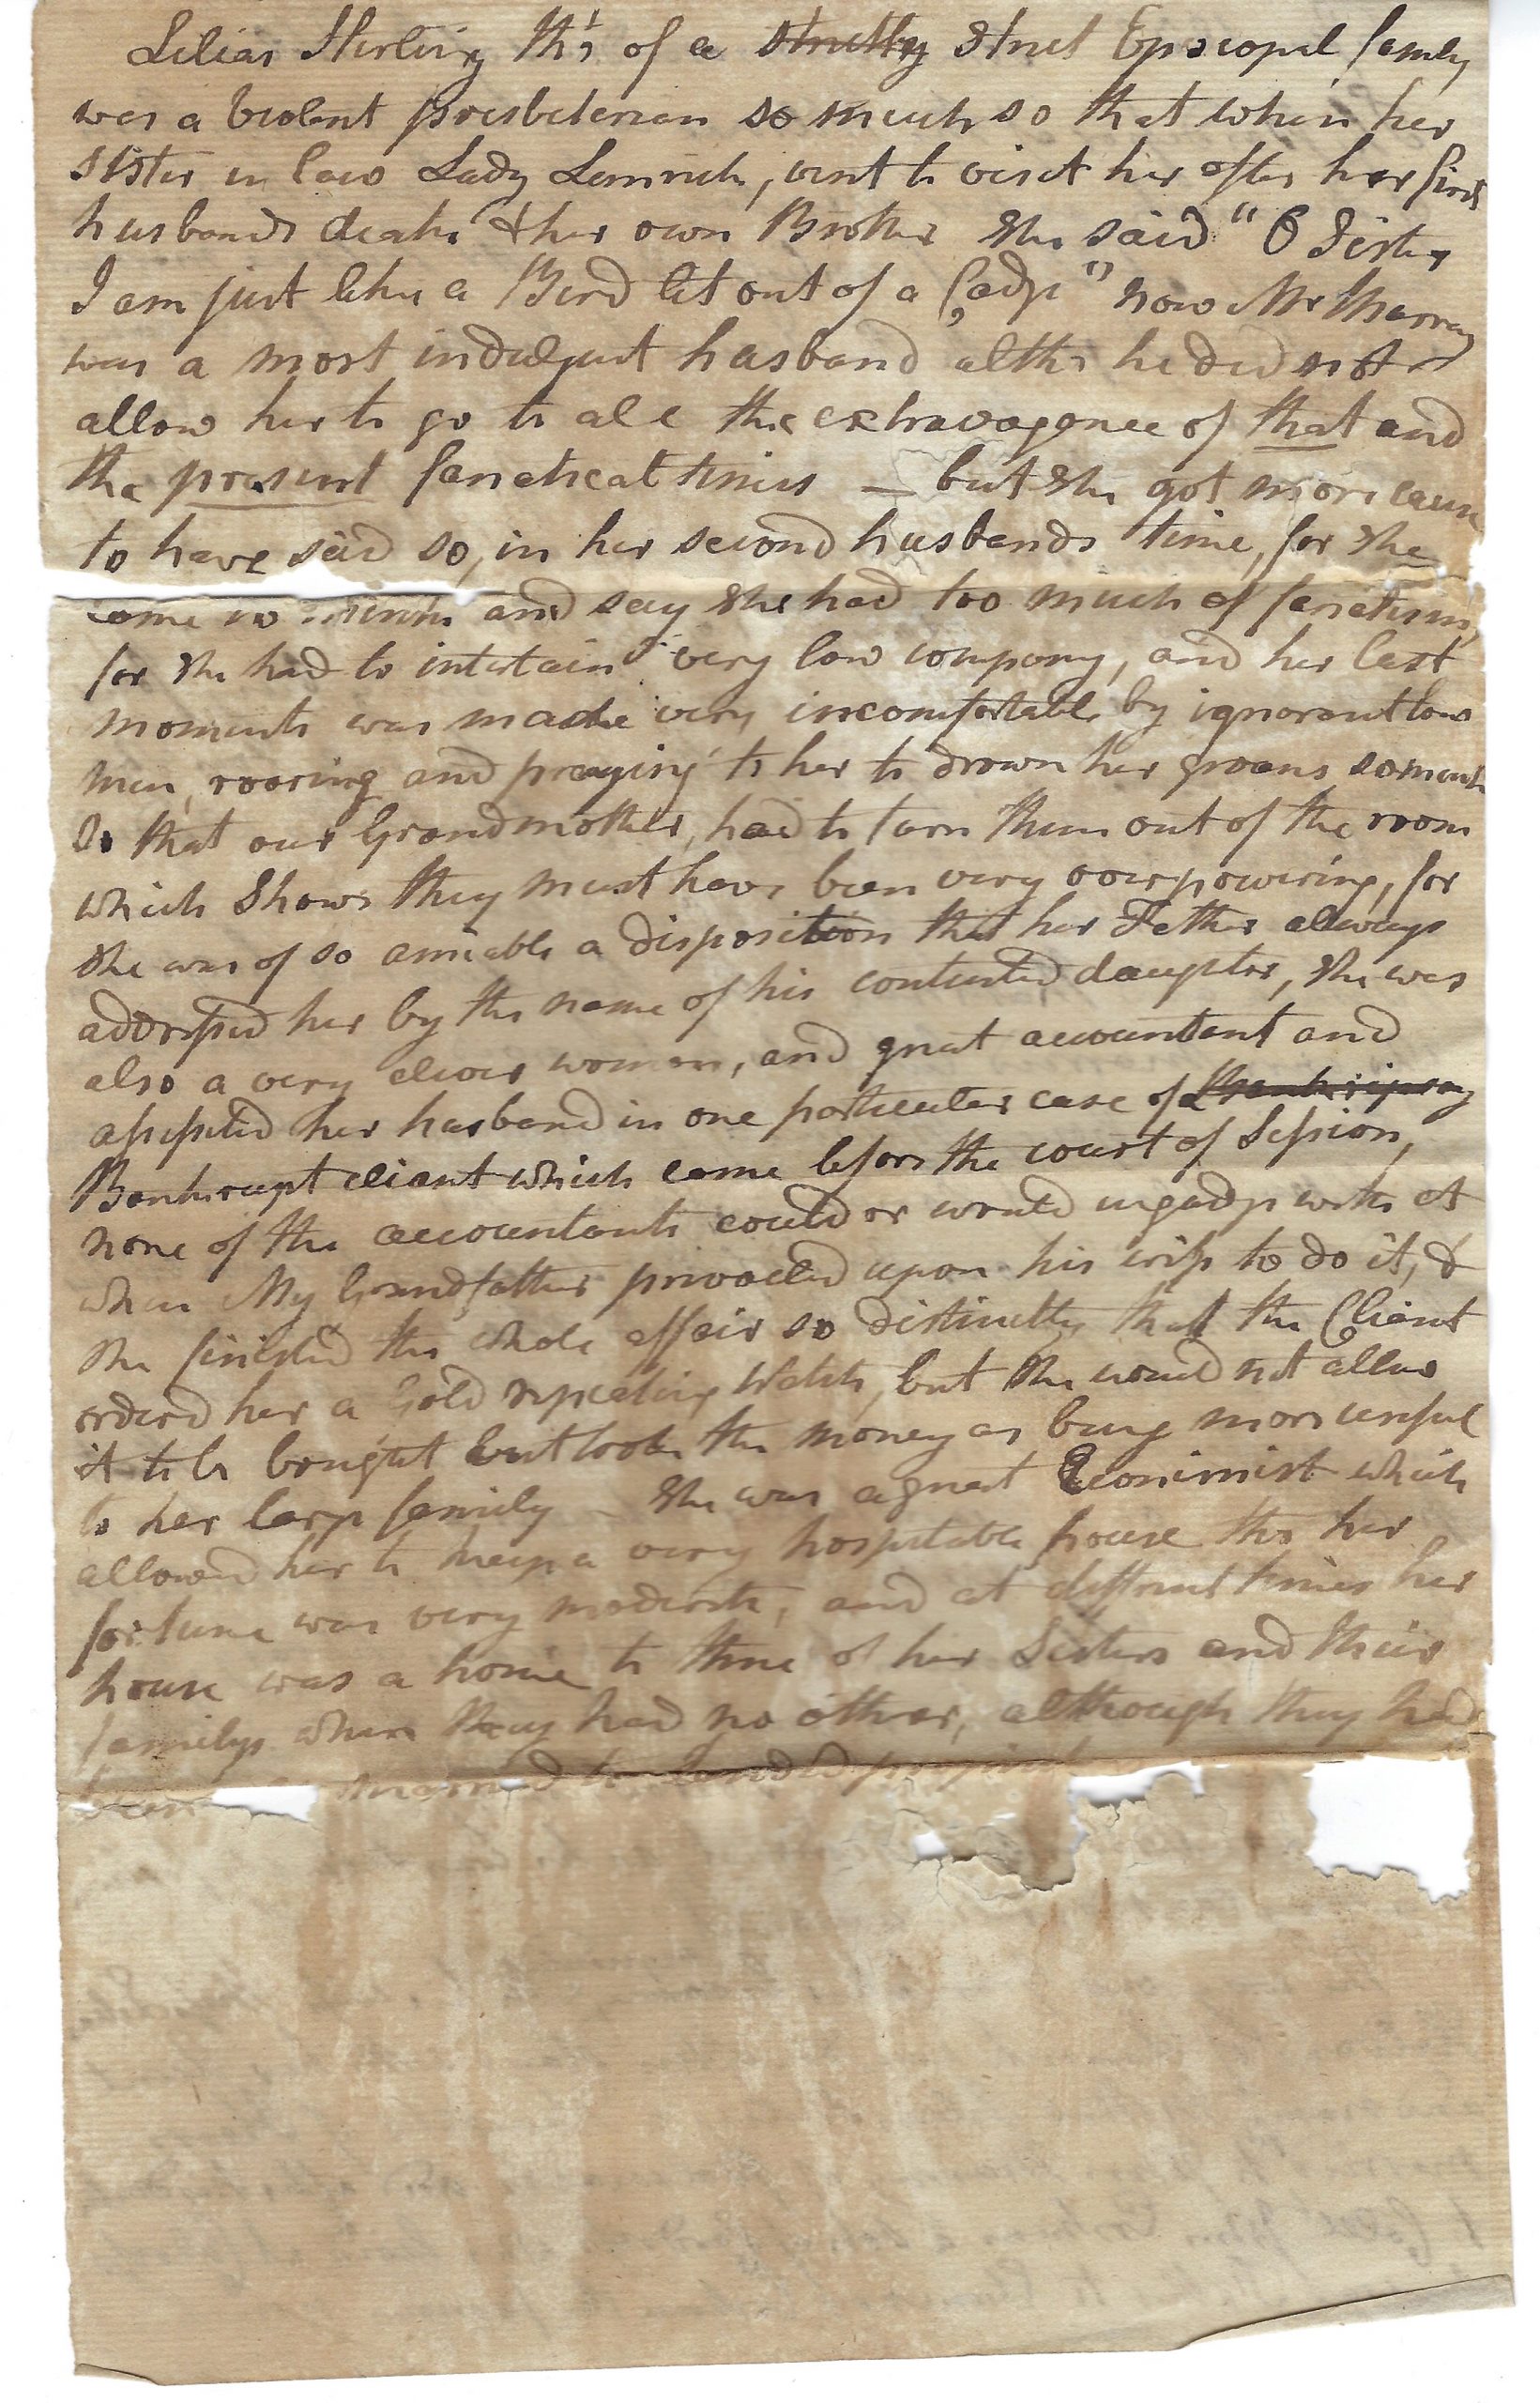 Lilias Sterling tho' of a strictly strict Episcopal family
was a violent presbeterian so much so that when her
sister in law Lady went to visit her after her first
husbands death & her own Brother she said "O Sister
I am just like a Bird let out of a Cadge" now Mr Murray
was a most indulgent husband altho he did not
allow her to go to all the extravagance of that and
the present fanetical times – but she got more cause
to have said so, in her second husbands time, for she
come and say she had too much of fanatisim,
for she had to intertain very low company, and her last
moments was made very incomfortable by ignorant low
men, rooring and praying to her to drown her groans so much
so that our Grandmother, had to turn them out of the room
which shows they must have been very overpowering, for
she was of so amiable a disposition that her Father always
addressed her by the name of his contented daughter, she was
also a very clever woman, and great accountant and
assisted her husband in one particular case of a
Bankrupt client which came before the court of Session,
none of the accountants could or would ingadge with it
when My Grandfather privailed upon his wife to do it, &
she finished the whole affair so distinctly that the Client
orderd her a Gold repeating Watch, but she would not allow
it to be bought but took the money as being more usefull
to her large family – She was a great Econimist which
allowed her to keep a very hospitable house tho her
fortune was very moderate, and at different times her
house was a home to three of her Sisters and their
familys when they had no other, although they had
been married to